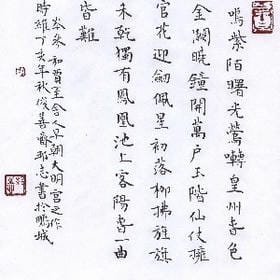 鳴紫陌曙光鶯囀皇州春色
金闕曉鐘開萬戶玉階仙仗擁
官花迎劍佩星初落柳拂旌旗
未乾獨有鳳凰池上客陽春一曲
皆難
岑參和賈至舍人早朝大明宮之作
時維丁亥年秋善齋書於鵬城